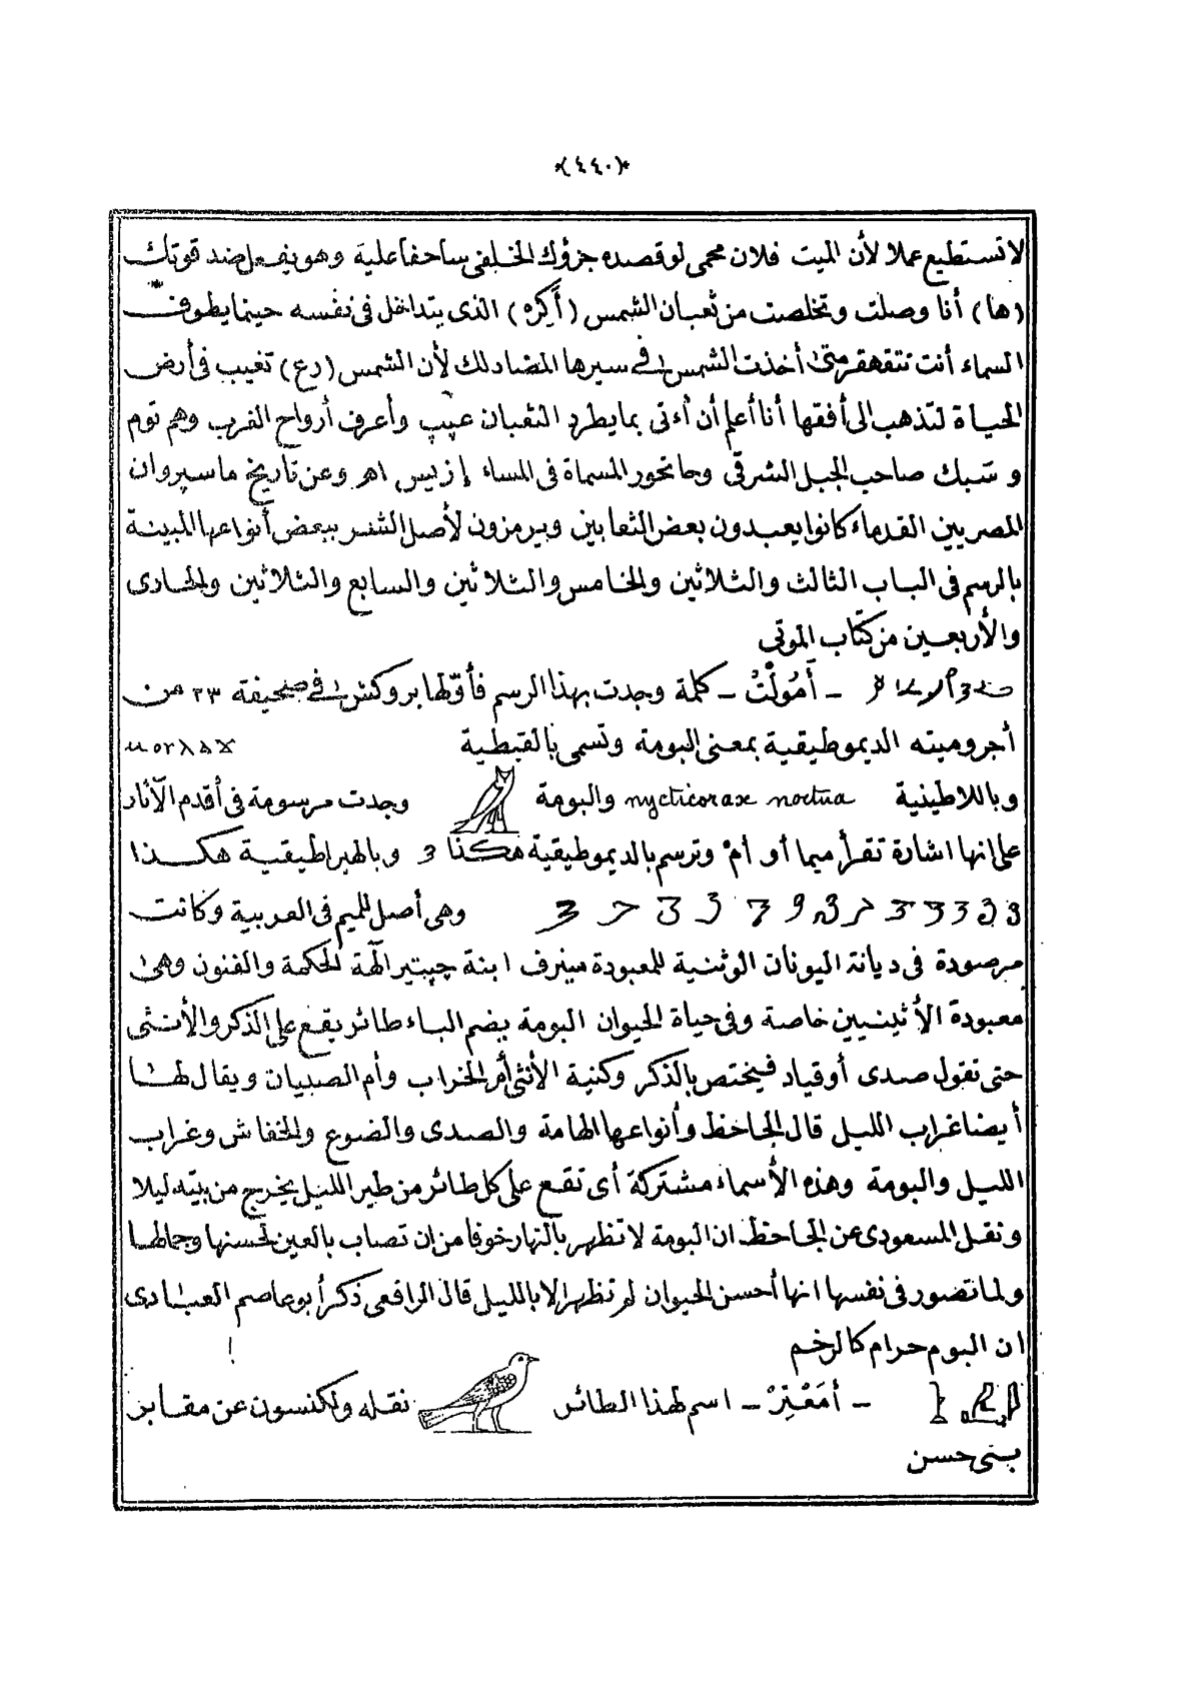 *(٤٤٠)*
لا تستطيع عملا لأن الميت فلان محمى لو قصده جزؤك الخلفى ساحفا عليه وهو يفعل ضد قوتك
(ها) أنا وصلت وتخلصت من ثعبان الشمس (أَكِرْه) الذى يتداخل فى نفسه حينما يطوف
السماء أنت تتقهقر متى أخذت الشمس فى سيرها المضاد لك لأن الشمس (رع) تغيب فى أرض
الحياة لتذهب الى أفقها أنا أعلم أن أءتى بما يطرد الثعبان عپپ وأعرف أرواح الغرب وهم توم
و سَبك صاحب الجبل الشرقى وحاتحور المسماة فى المساء إزيس اهـ وعن تاريخ ماسپرو ان
المصريين القدماء كانوا يعبدون بعض الثعابين ويرمزون لأصل الشر ببعض أنواعها المبينة
بالرسم فى الباب الثالث والثلاثين والخامس والثلاثين والسابع والثلاثين والحادى
والأربعين من كتاب الموتى
ـ أَمُولَتْ ـ كلمة وجدت بهذا الرسم فأوّلها بروكش فى صحيفة ٢٣ من
أجروميته الديموطيقية بمعنى البومة وتسمى بالقبطية ⲙⲟⲩⲗⲁϫ
وباللاطينية nycticorax noctua والبومة وجدت مرسومة فى أقدم الآثار
على انها اشارة تقرأ ميما أو أم وترسم بالديموطيقية هكذا 3 وبالهيراطيقية هكذا
وهى أصل للميم فى العربية وكانت
مرصودة فى ديانة اليونان الوثنية للمعبودة مينرف ابنة چپيتير الٓهة الحكمة والفنون وهى
معبودة الأثينيين خاصة وفى حياة الحيوان البومة بضم الباء طائر يقع على الذكر والأنثى
حتى تقول صدى أو قياد فيختص بالذكر وكنية الأنثى أم الخراب وأم الصبيان ويقال لها
أيضا غراب الليل قال الجاحظ وأنواعها الهامة والصدى والضوع والخفاش وغراب
الليل والبومة وهذه الأسماء مشتركة أى تقع على كل طائر من طير الليل يخرج من بيته ليلا
ونقل المسعودى عن الجاحظ ان البومة لا تظهر بالنهار خوفا من ان تصاب بالعين لحسنها وجمالها
ولما تصور فى نفسها انها أحسن الحيوان لم تظهر الا بالليل قال الرافعى ذكر أبو عاصم العبادى
ان البوم حرام كالرخم
ـ أمَعْنِرْ ـ اسم لهذا الطائر نقله ولكنسون عن مقابر
بنى حسن